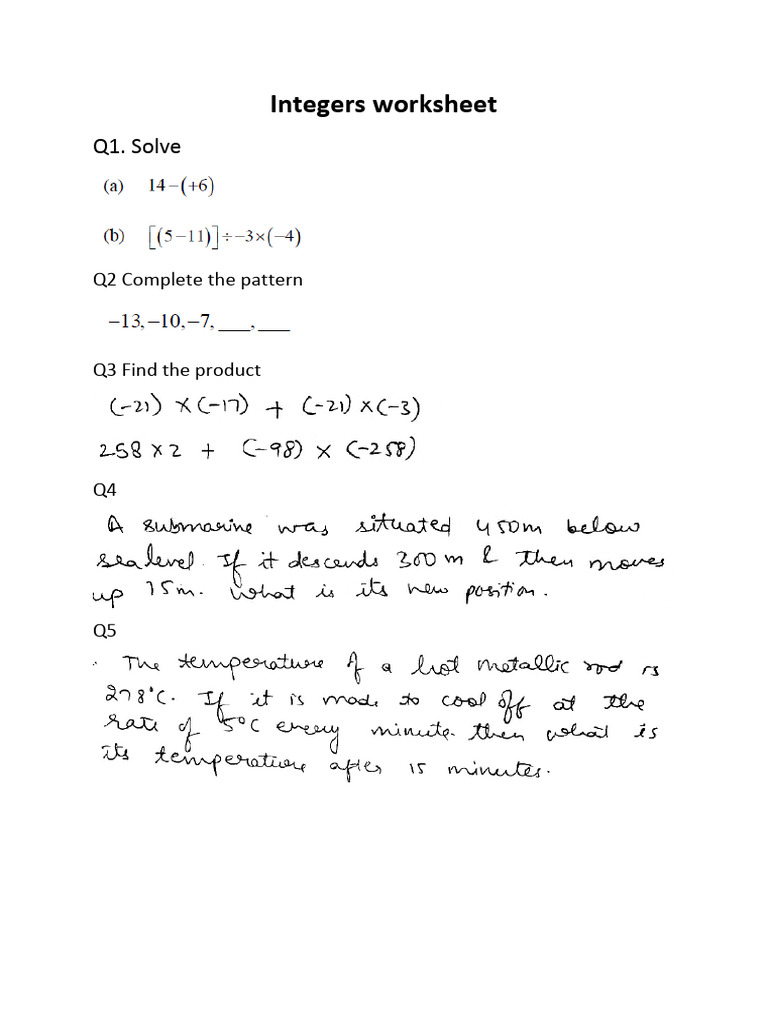 Integers worksheet
Q1. Solve
(a) 14−(+6)
(b) [(5−11)]÷−3×(−4)
Q2 Complete the pattern
−13,−10,−7, ___,___
Q3 Find the product
(-21) ×(-17) + (-21)×(-3)
258×2 + (-98) × (-258)
Q4
A submarine was situated 450m below
sea level. If it descends 300 m & then moves
up 75m. What is its new position.
Q5
The temperature of a hot metallic rod is
278°C. If it is made to cool off at the
rate of 5°C every minute. then what is
its temperature after 15 minutes.